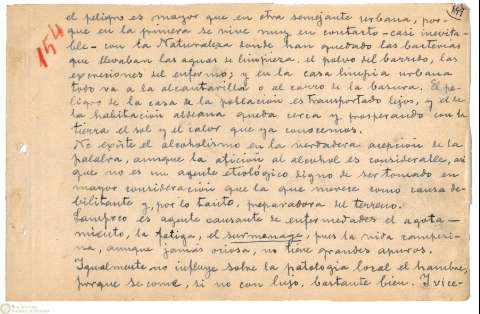 154
el peligro es mayor que en otra semejante urbana, por-
que en la primera se vive muy en contacto - casi inevita-
ble - con la Naturaleza donde han quedado las bacterias
que llevaban las aguas de limpieza, el polvo del barrido, las
excresiones del enfermo; y en la casa limpia urbana
todo va a la alcantarilla o al carro de la basura. El pe-
ligro de la casa de la población es transportado lejos, y el de
la habitación aldeana queda cerca y prosperando con la
tierra el sol y el calor que ya conocemos.
No existe el alcoholismo en la verdadera acepción de la
palabra, aunque la afición al alcohol es considerable, así
que no es un agente etiológico digno de ser tomado en
mayor consideración que la que merece como causa de-
bilitante y, por lo tanto, preparadora del terreno.
Tampoco es agente causante de enfermedades el agota-
miento, la fatiga, el surmenage, pues la vida campesi-
na, aunque jamás ociosa, no tiene grandes apuros.
Igualmente no influye sobre la patología local el hambre,
porque se come, si no con lujo, bastante bien. Y vice-